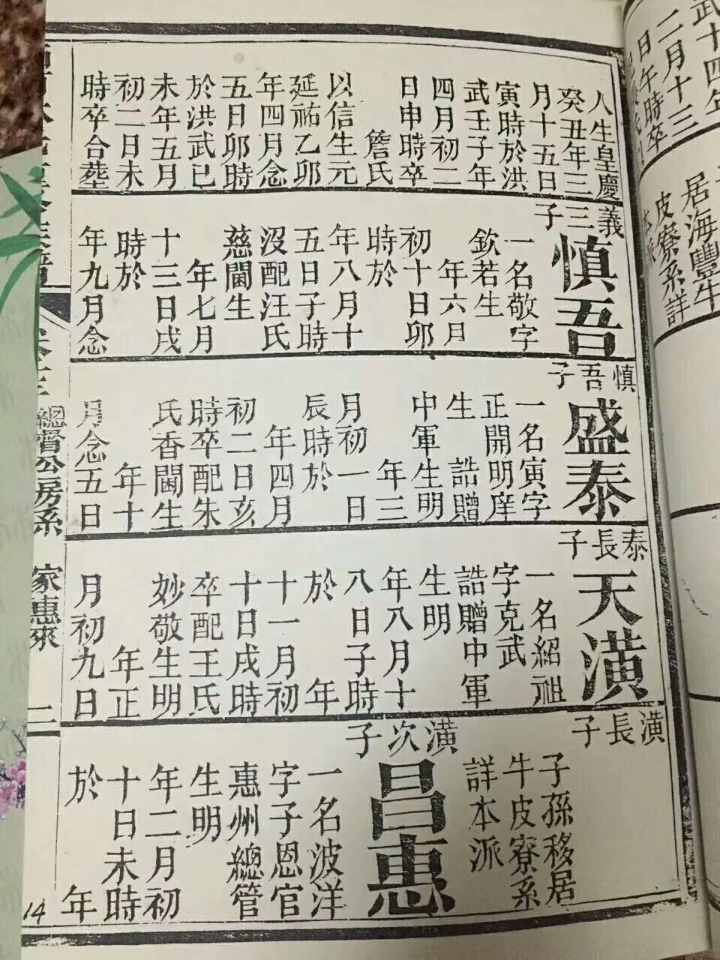 人生皇慶
癸丑年三
月十五日
寅時於洪
武壬子年
四月初二
日申時卒
詹氏
以信生元
延祐乙卯
年四月念
五日卯時
於洪武已
未年五月
初二日未
時卒合葬
義三子
慎吾
一名敬字
欽若生
年六月
初十日卯
時於
年八月十
五日子時
沒配汪氏
慈閫生
年七月
十三日戌
時於
年九月念
慎吾子
盛泰
一名寅字
正開明庠
生誥贈
中軍生明
年三
月初一日
辰時於
年四月
初二日亥
時卒配朱
氏香閫生
年十
月念五日
泰長子
天潢
一名紹祖
字克武
誥贈中軍
生明
年八月十
八日子時
於年
十一月初
十日戌時
卒配王氏
妙敬生明
年正
月初九日
潢長子
子孫移居
牛皮寮系
詳本派
潢次子
昌惠
一名波洋
字子恩官
惠州總管
生明
年二月初
十日未時
於年
總督公房系 家惠來 二
14
武十四年
二月十三
日午時卒
居海豐牛
皮寮系詳
本派